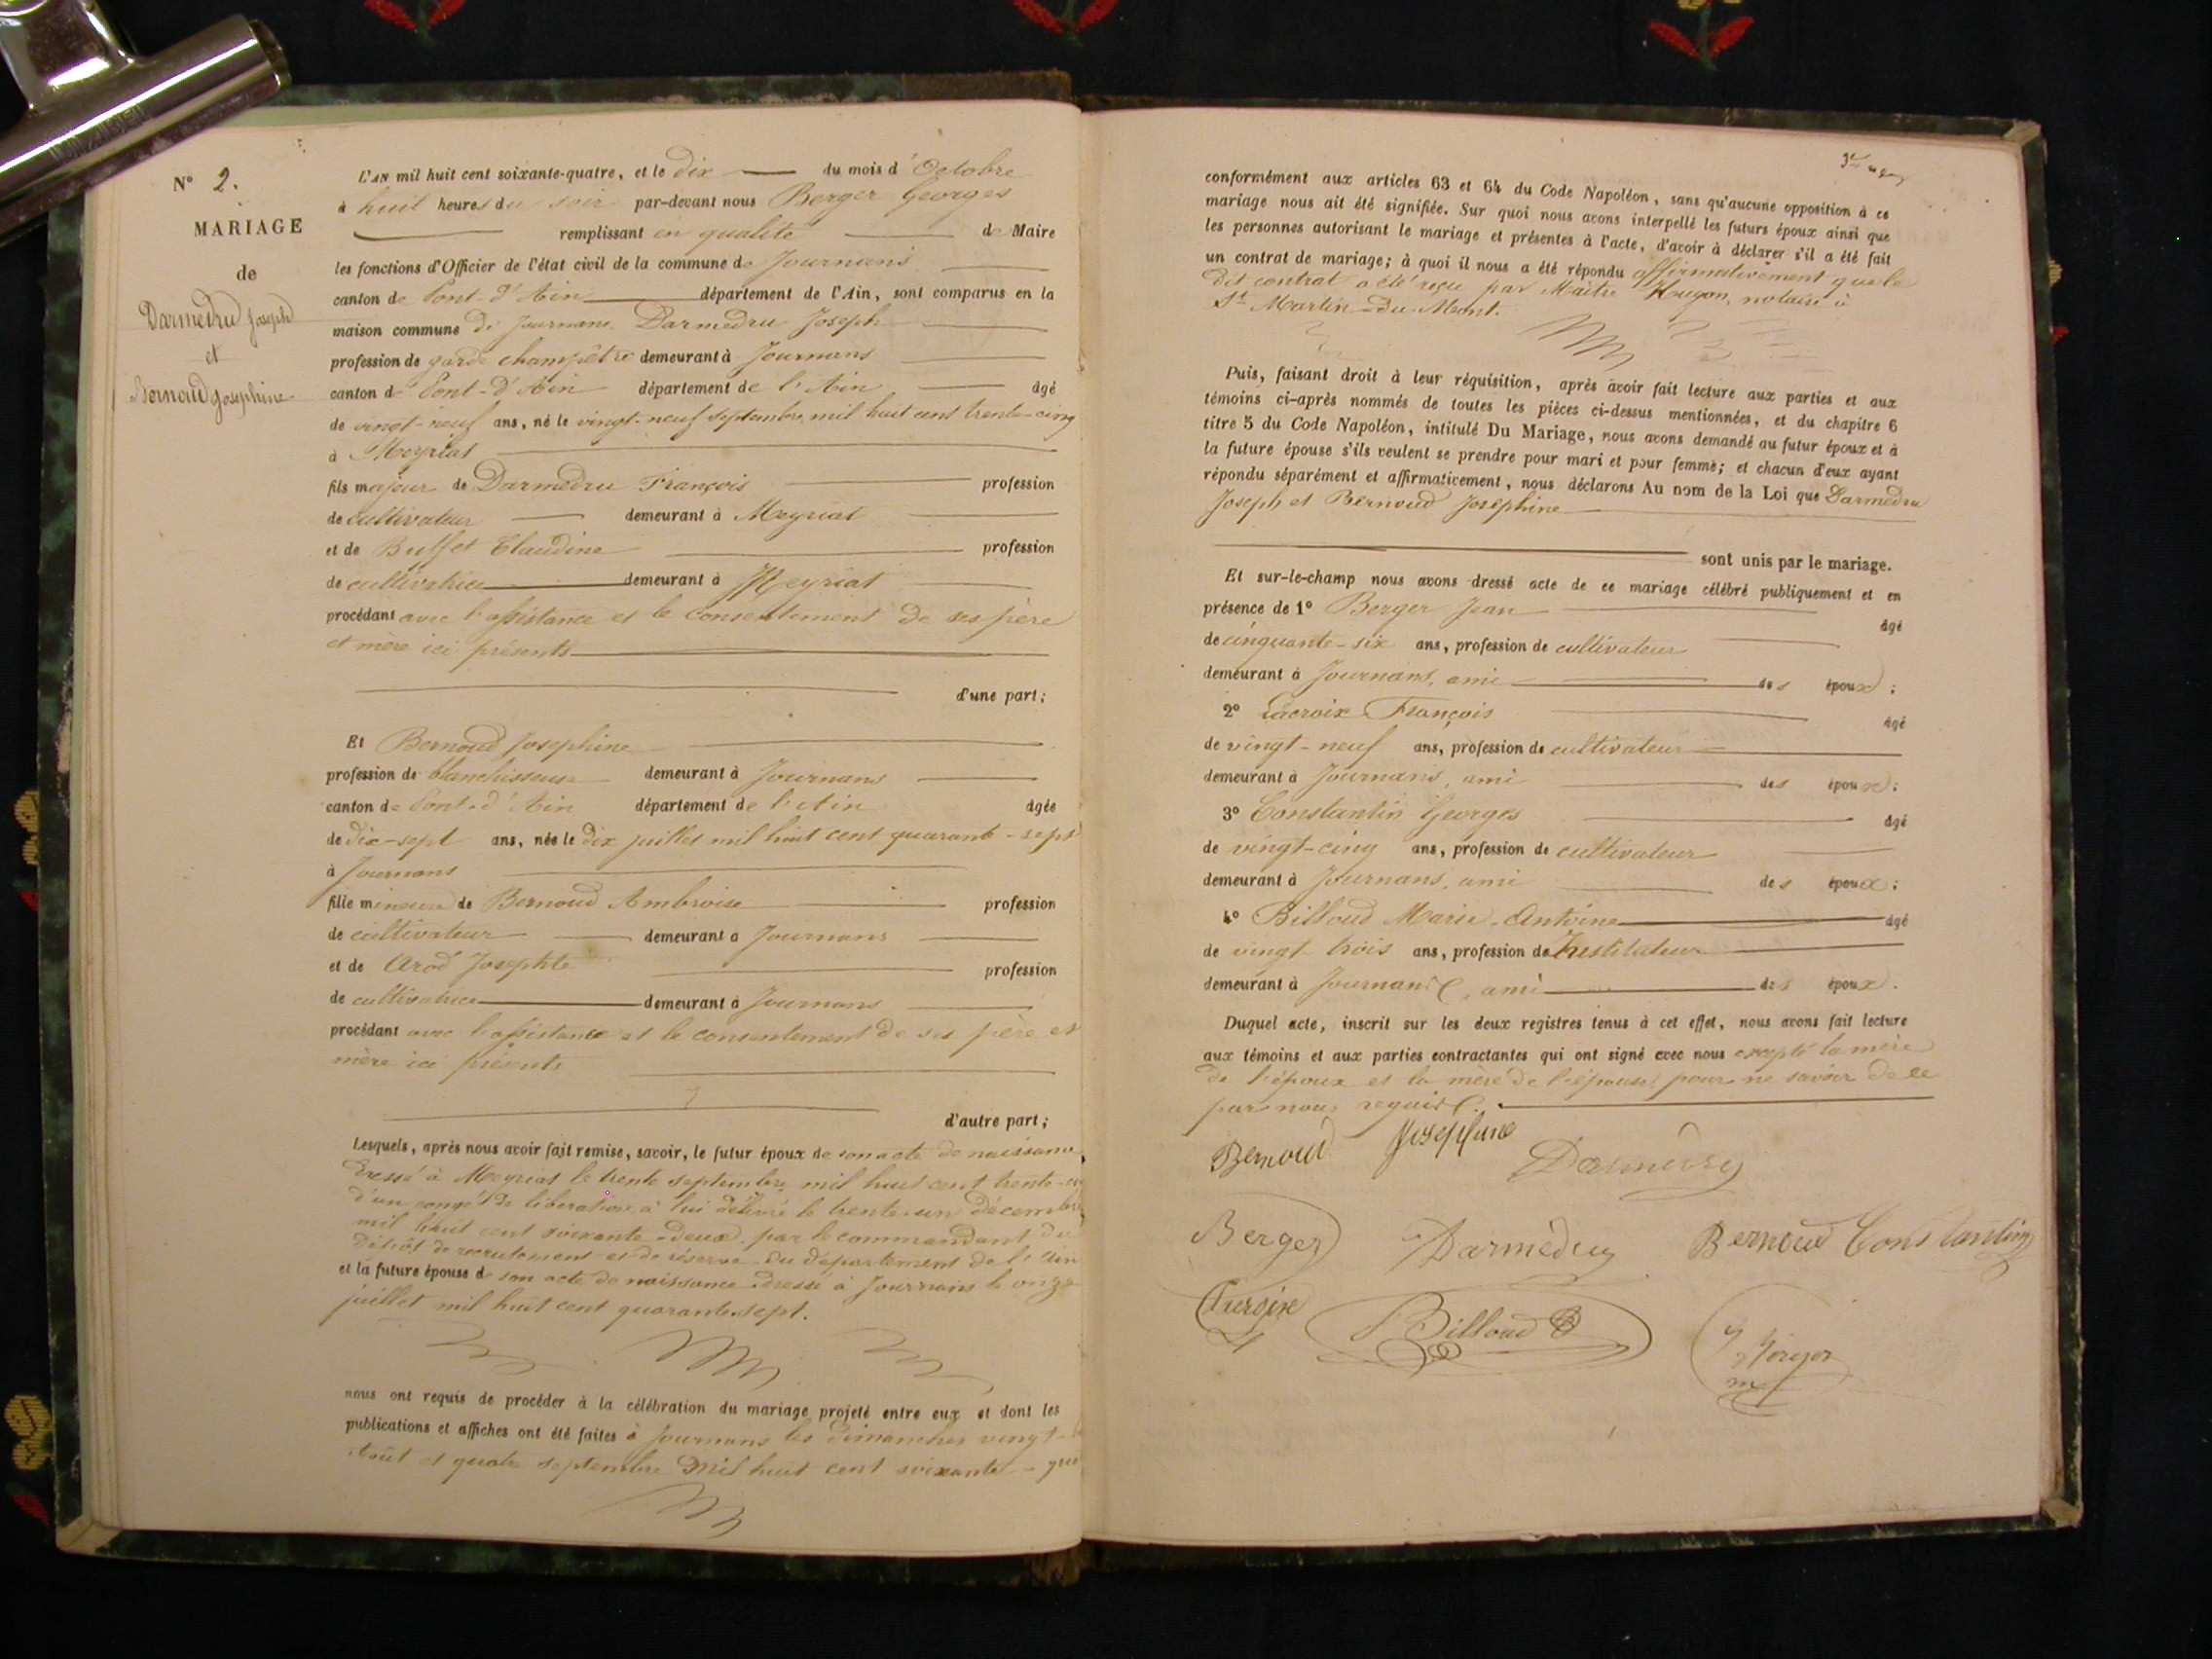 N° 2.
MARIAGE
de
Darmedru Joseph
et
Bernoud Josephine
L'AN mil huit cent soixante-quatre, et le dix du mois d'Octobre
à huit heures du soir par-devant nous Berger Georges
remplissant en qualité de Maire
les fonctions d'Officier de l'état civil de la commune de Journans
canton de Pont-d'Ain département de l'Ain, sont comparus en la
maison commune de Journans Darmedru Joseph
profession de garde champêtre demeurant à Journans
canton de Pont-d'Ain département de l'Ain âgé
de vingt-neuf ans, né le vingt-neuf septembre mil huit cent trente-cinq
à Meyriat
fils majeur de Darmedru François profession
de cultivateur demeurant à Meyriat
et de Buffet Claudine profession
de cultivatrice demeurant à Meyriat
procédant avec l'assistance et le consentement de ses père
et mère ici présents
d'une part;
Et Bernoud Josephine
profession de blanchisseuse demeurant à Journans
canton de Pont-d'Ain département de l'Ain âgée
de dix-sept ans, née le dix juillet mil huit cent quarante-sept
à Journans
fille mineure de Bernoud Ambroise profession
de cultivateur demeurant à Journans
et de Arod Josephte profession
de cultivatrice demeurant à Journans
procédant avec l'assistance et le consentement de ses père et
mère ici présents
d'autre part;
Lesquels, après nous avoir fait remise, savoir, le futur époux de son acte de naissance
dressé à Meyriat le trente septembre mil huit cent trente-
d'un congé de libération à lui délivré le trente-un décembre
mil huit cent soixante-deux par le commandant du
dépôt de recrutement et de réserve du département de l'Ain
et la future épouse de son acte de naissance dressé à Journans le onze
juillet mil huit cent quarante-sept.
nous ont requis de procéder à la célébration du mariage projeté entre eux et dont les
publications et affiches ont été faites à Journans les dimanches vingt-
août et quatre septembre mil huit cent soixante-
conformément aux articles 63 et 64 du Code Napoléon, sans qu'aucune opposition à ce
mariage nous ait été signifiée. Sur quoi nous avons interpellé les futurs époux ainsi que
les personnes autorisant le mariage et présentes à l'acte, d'avoir à déclarer s'il a été fait
un contrat de mariage; à quoi il nous a été répondu affirmativement que le
dit contrat a été reçu par Maître Hugon, notaire à
St Martin-du-Mont.
Puis, faisant droit à leur réquisition, après avoir fait lecture aux parties et aux
témoins ci-après nommés de toutes les pièces ci-dessus mentionnées, et du chapitre 6
titre 5 du Code Napoléon, intitulé Du Mariage, nous avons demandé au futur époux et à
la future épouse s'ils veulent se prendre pour mari et pour femme; et chacun d'eux ayant
répondu séparément et affirmativement, nous déclarons Au nom de la Loi que Darmedru
Joseph et Bernoud Josephine
sont unis par le mariage.
Et sur-le-champ nous avons dressé acte de ce mariage célébré publiquement et en
présence de 1° Berger Jean âgé
de cinquante-six ans, profession de cultivateur
demeurant à Journans, ami des époux;
2° Lacroix François âgé
de vingt-neuf ans, profession de cultivateur
demeurant à Journans, ami des époux;
3° Constantin Georges âgé
de vingt-cinq ans, profession de cultivateur
demeurant à Journans, ami des époux;
4° Billoud Marie-Antoine âgé
de vingt trois ans, profession de Instituteur
demeurant à Journans, ami des époux.
Duquel acte, inscrit sur les deux registres tenus à cet effet, nous avons fait lecture
aux témoins et aux parties contractantes qui ont signé avec nous excepté la mère
de l'époux et la mère de l'épouse pour ne savoir de ce
par nous requis.
Bernoud Josephine Darmedru
Berger Darmedru Bernoud Constantin
Lacroix Billoud Berger